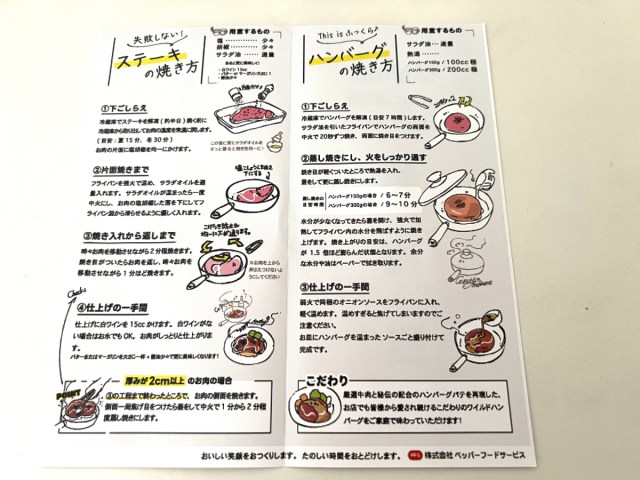 失敗しない!
ステーキ
の焼き方
用意するもの
塩 ………… 少々
胡椒 ……… 少々
サラダ油 …… 適量
あると更に美味しい!
・白ワイン 15cc
・バター or マーガリン大さじ1
・醤油少々
①下ごしらえ
冷蔵庫でステーキを解凍(約半日)焼く前に
冷蔵庫から取出してお肉の温度を常温に戻します。
(目安:夏15分、冬30分)
お肉の片面に塩胡椒を均一にかけます。
②片面焼きまで
フライパンを強火で温め、サラダオイルを適
量入れます。サラダオイルが温まったら一度
中火にし、お肉の塩胡椒した面を下にしてフ
ライパン奥から滑らせるように優しく入れます。
③焼き入れから返しまで
時々お肉を移動させながら2分程焼きます。
焼き目がついたらお肉を返し、時々お肉を
移動させながら1分ほど焼きます。
※お肉を上から
押さえつけないよ
うにしてください
Check
④仕上げの一手間
仕上げに白ワインを15ccかけます。白ワインがな
い場合はお水でもOK。お肉がしっとりと仕上がりま
す。
バターまたはマーガリンを大さじ一杯+醤油少々で更に美味しくなります!
POINT
厚みが2cm以上のお肉の場合
③の工程まで終わったところで、お肉の側面を焼きます。
側面一周焦げ目をつけたら蓋をして中火で1分から2分程
度蒸し焼きにします。
This is ふっくら♪
ハンバーグ
の焼き方
用意するもの
サラダ油… 適量
熱湯 ………
ハンバーグ150g / 100cc 程
ハンバーグ300g / 200cc 程
①下ごしらえ
冷蔵庫でハンバーグを解凍(目安7時間)します。
サラダ油を引いたフライパンでハンバーグの両面を
中火で20秒ずつ焼き、両面に焼き目をつけます。
②蒸し焼きにし、火をしっかり通す
焼き目が軽くついたところで熱湯を入れ、
蓋をして更に蒸し焼きにします。
蒸し焼きの
目安時間
ハンバーグ150gの場合 / 6〜7分
ハンバーグ300gの場合 / 9〜10分
水分が少なくなってきたら蓋を開け、強火で加
熱してフライパン内の水分を飛ばすように焼き
上げます。焼き上がりの目安は、ハンバーグ
が1.5倍ほど膨らんだ状態となります。余分
な水分や油はペーパーで拭き取ります。
③仕上げの一手間
弱火で同梱のオニオンソースをフライパンに入れ、
軽く温めます。温めすぎると焦げてしまいますのでご
注意ください。
お皿にハンバーグを温まったソースごと盛り付けて
完成です。
こだわり
厳選牛肉と秘伝の配合のハンバーグパテを再現した、
お店でも皆様から愛され続けるこだわりのワイルドハン
バーグをご家庭で味わっていただけます!
おいしい笑顔をおつくりします。たのしい時間をおとどけします。
株式会社 ペッパーフードサービス